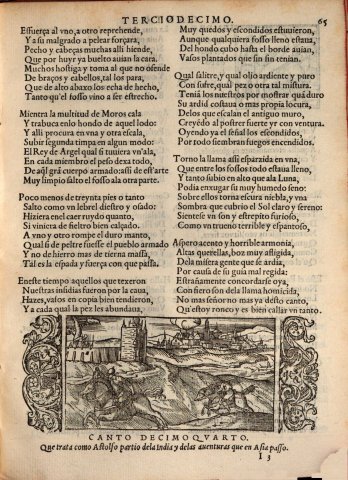 TERCIO DECIMO. 65
Esfuerça al vno, a otro reprehende,
Y a su malgrado a pelear forçara,
Pecho y cabeças muchas alli hiende,
Que por huyr ya buelto auian la cara.
Muchos hostiga y toma al que no ofende
De braços y cabellos, tal los para,
Que de alto abaxo los echa de hecho,
Tanto que'l fosso vino a ser estrecho.
Mientra la multitud de Moros cala
Y trabuca en lo hondo de aquel lodo:
Y alli procura en vna y otra escala,
Subir segunda timpa en algun modo:
El Rey de Argel qual si tuuiera vn'ala,
En cada miembro el peso dexa todo,
De aq̃l grã cuerpo armado: assi de est'arte
Muy limpio salto el fosso ala otra parte.
Poco menos de treynta pies o tanto
Salto como vn lebrel diestro y osado:
Hiziera en el caer ruydo quanto,
Si vinicta de fieltro bien calçado.
A vno y otro rompe el duro manto,
Qual si de peltre fuesse el pueblo armado
Y no de hierro mas de tierna massa,
Tal es la espada y fuerça con que passa.
Eneste tiempo aquellos que texeron
Nuestras insidias fueron por la caua,
Hazes, vasos en copia bien tendieron,
Y a cada qual la pez les abundaua,
Muy quedos y escondidos estuuieron,
Aunque qualquiera fosso lleno estaua,
Del hondo cubo hasta el borde auian,
Vasos plantados que sin sin tenian.
Qual salitre, y qual olio ardiente y puro
Con sufre, qual pez o otra tal mistura.
Teniã los nuestros por mostrar quã duro
Su ardid costaua o mas propia locura,
Delos que escalan el antiguo muro,
Creyẽdo al postrer fuerte yr con ventura.
Oyendo ya el señal los escondidos,
Por todo siembran fuegos encendidos.
Torno la llama assi esparzida en vna,
Que entre los fossos todo estaua lleno,
Y tanto subio en alto que ala Luna,
Podia enxugar su muy humedo seno:
Sobre ellos torna escura niebla, y vna
Sombra que cubrio el Sol claro y sereno:
Sientese vn son y estrepito furioso,
Como vn trueno terrible y espantoso,
Aspero acento y horrible armonia,
Altas querellas, boz muy affligida,
Dela misera gente que se ardia,
Por causa de su guia mal regida:
Estrañamente concordarse oya,
Con fiero son dela llama homicida,
No mas señor no mas ya desto canto,
Qu'estoy ronco y es bien callar vn tanto.
CANTO DECIMO QVARTO.
Que trata como Astolfo partio dela India y delas auenturas que en Asia passo.
I 3